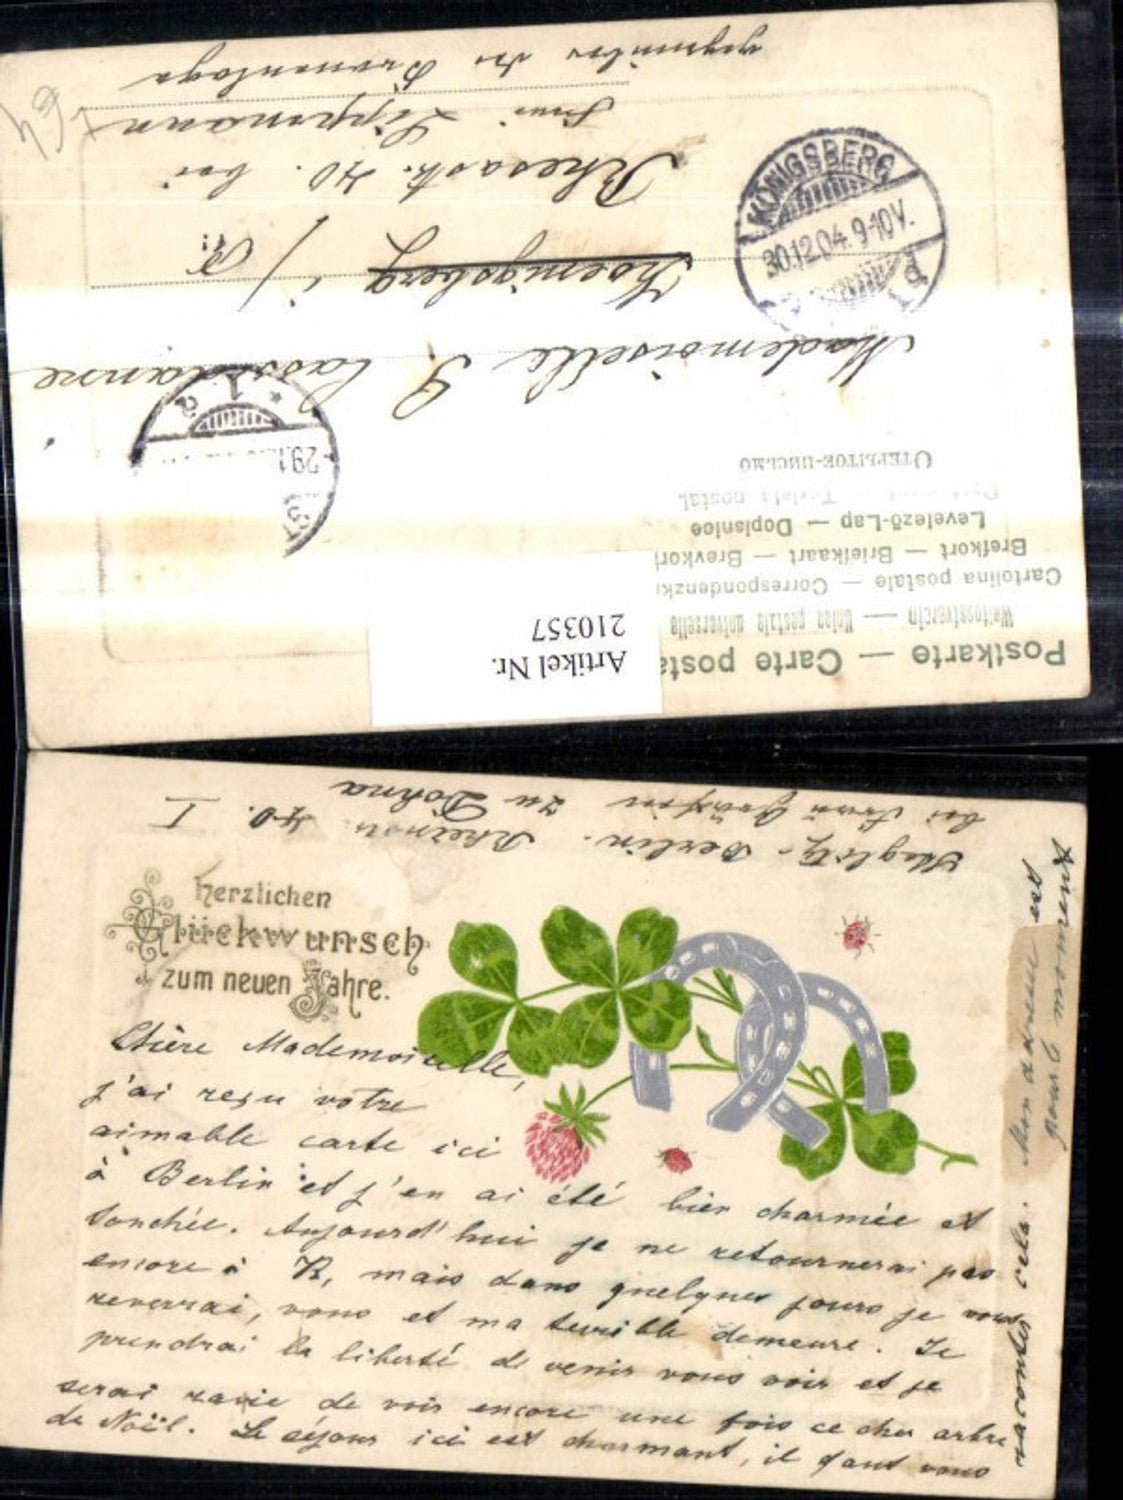 Postkarte — Carte posta
Weltpostverein — Union postale universelle
Cartolina postale — Correspondenzk
Brefkort — Briefkaart — Brevkort
Levelező-Lap — Dopisnice
Открытое письмо
Artikel Nr.
210357
KÖNIGSBERG
30.12.04. 9-10V.
d
29.1
* 1 a
Mademoiselle
Koenigsberg i/
40. bei
Frau Lippmann
164
Steglitz-Berlin. 40. I
bei Frau Gräfin zu Dohna
Herzlichen
Glückwunsch
zum neuen Jahre.
Chère Mademoiselle,
j'ai reçu votre
aimable carte ici
à Berlin et j'en ai été bien charmée et
touchée. Aujourd'hui je ne retournerai pas
encore à K, mais dans quelques jours je vous
reverrai, vous et ma terrible demeure. Je
prendrai la liberté de venir vous voir et je
serai ravie de voir encore une fois ce cher arbre
de Noël. Le séjour ici est charmant, il faut vous
raconter cela. Mon adresse est
pour le moment